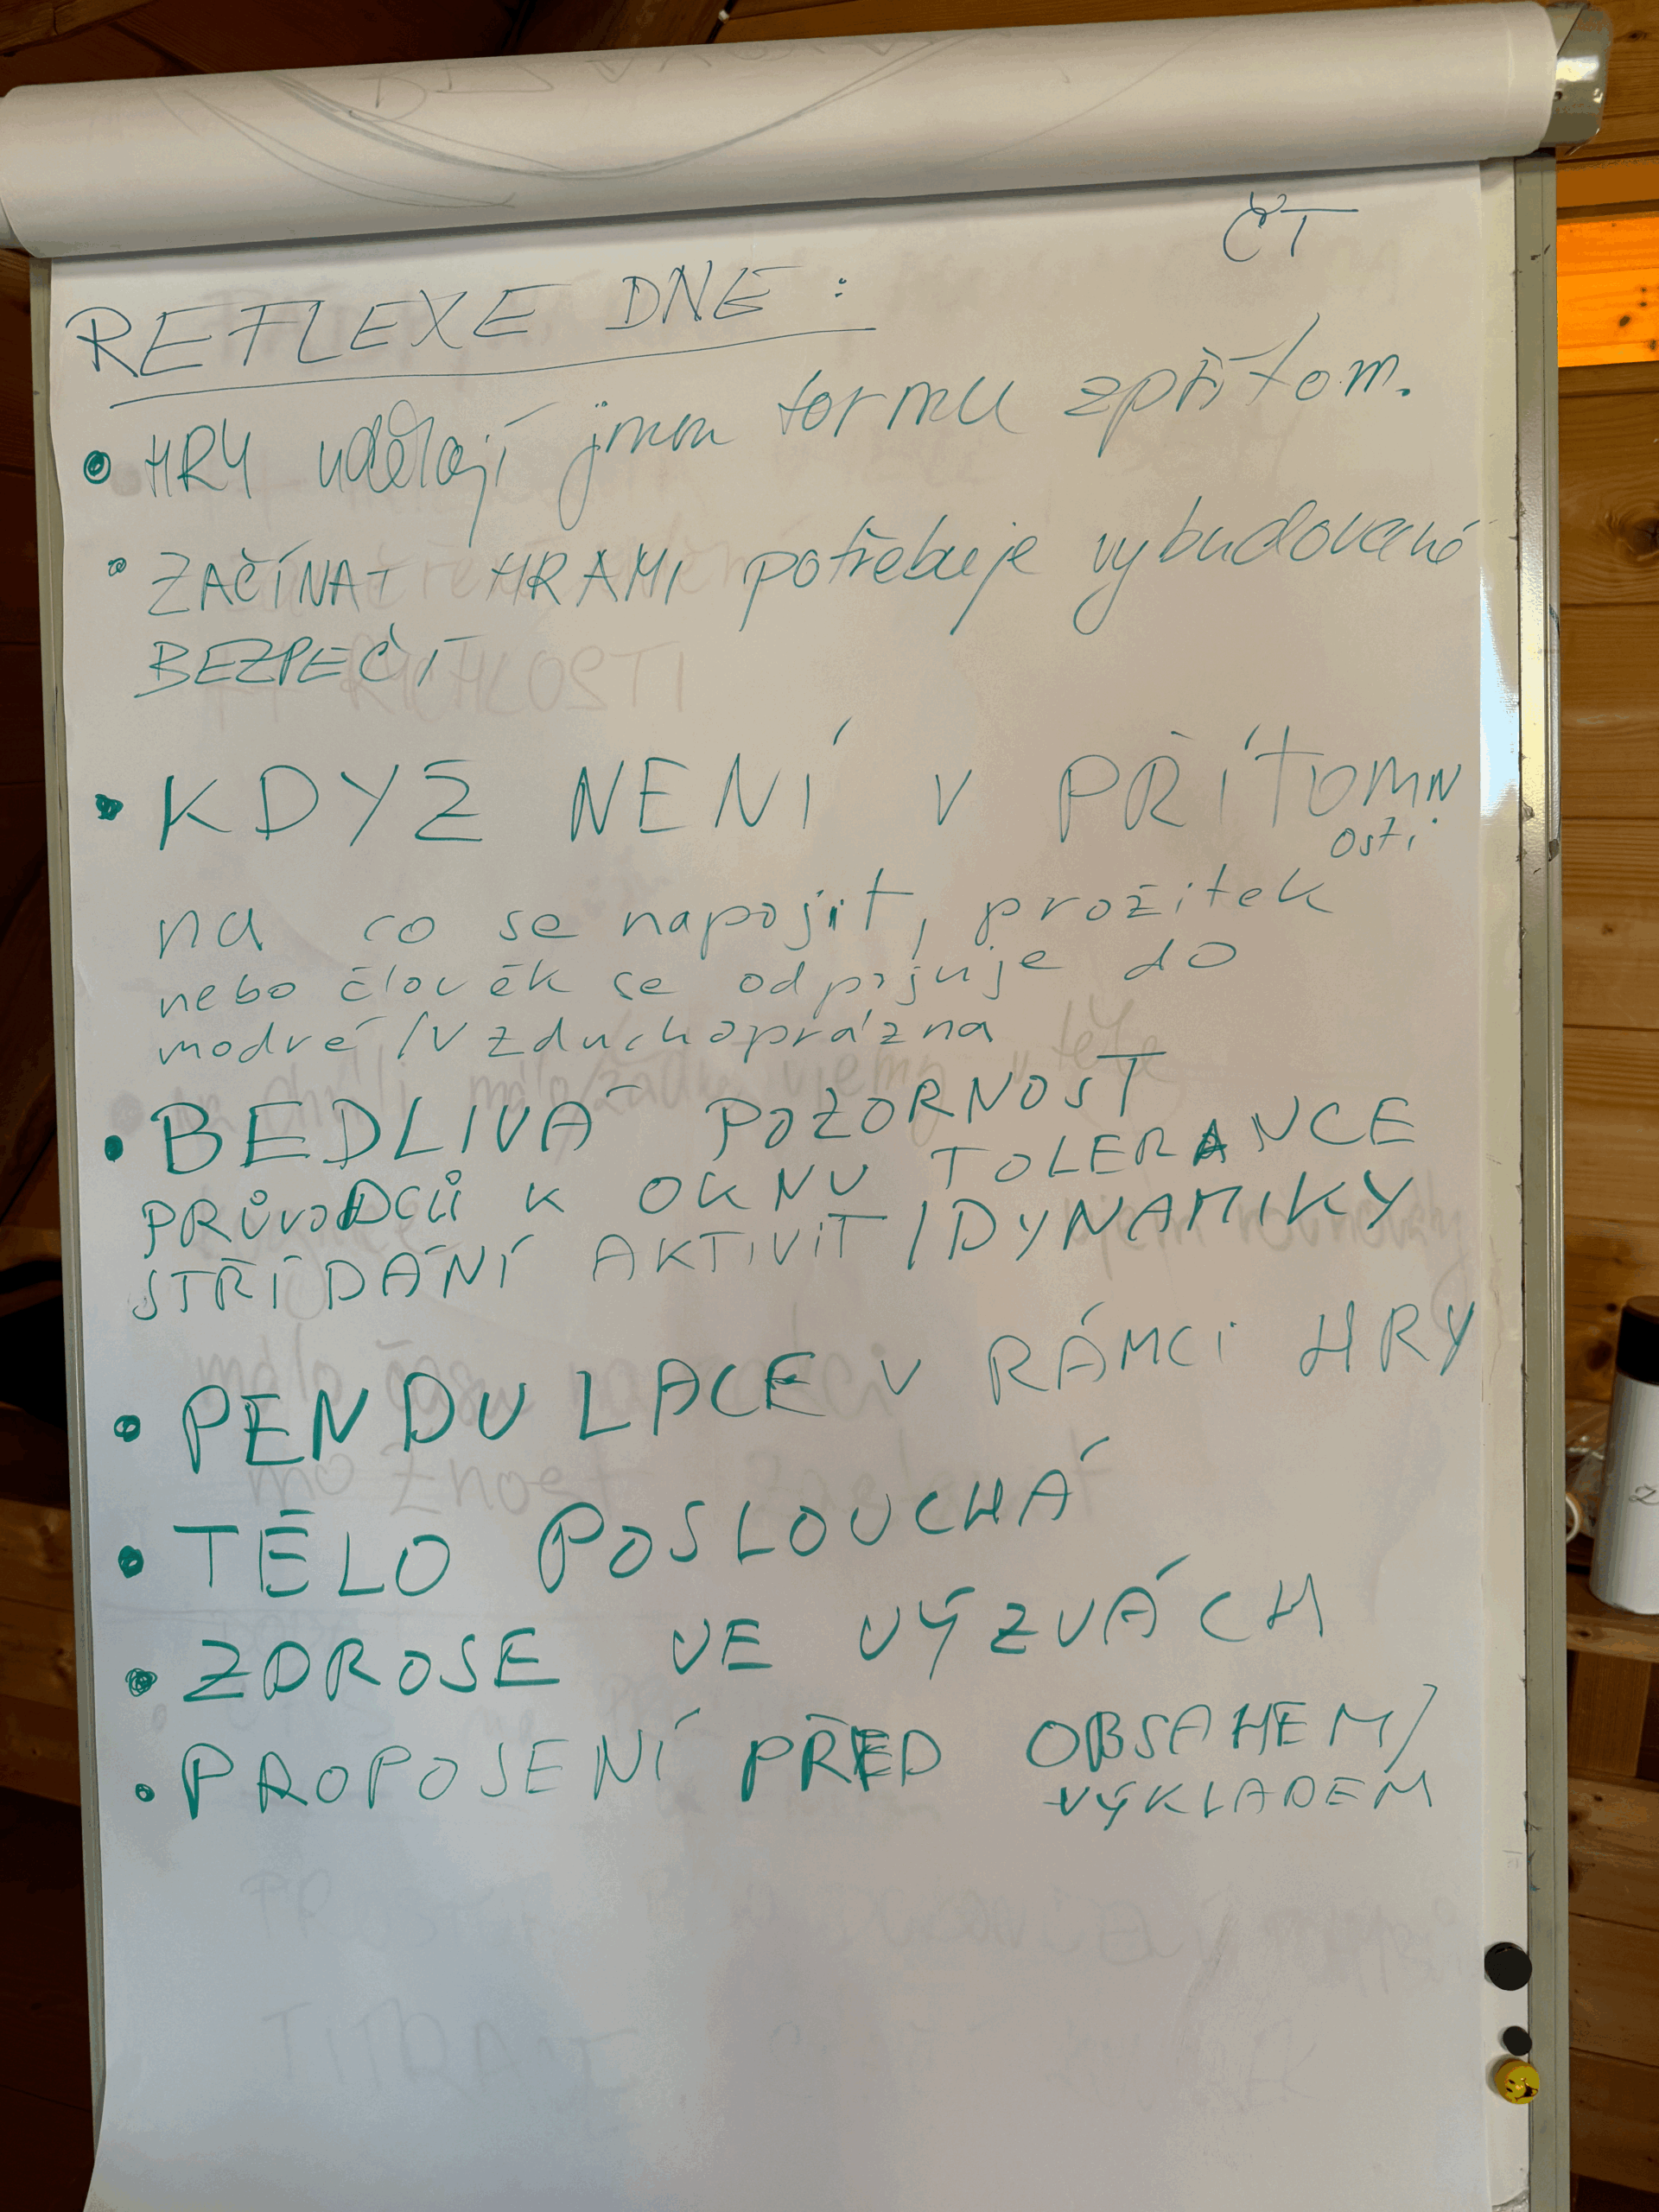 ČT
REFLEXE DNE :
• HRY udělají jinou formu zpřítom.
• ZAČÍNAT HRAMI potřebuje vybudované
BEZPEČÍ
• KDYŽ NENÍ V PŘÍTOMN
osti
na co se napojit, prožitek
nebo člověk se odpojuje do
modré / Vzduchoprázdna
• BEDLIVÁ POZORNOST
PRŮVODCŮ K OKNU TOLERANCE
STŘÍDÁNÍ AKTIVIT / DYNAMIKY
• PENDULACE V RÁMCI HRY
• TĚLO POSLOUCHÁ
• ZDROSE VE VÝZVÁCH
• PROPOJENÍ PŘED OBSAHEM/
VÝKLADEM